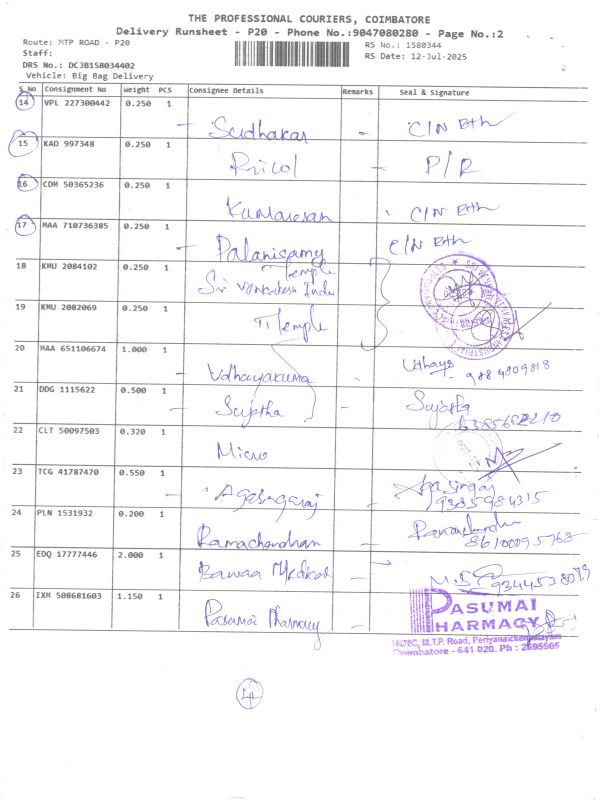 THE PROFESSIONAL COURIERS, COIMBATORE
Delivery Runsheet - P20 - Phone No.:9047080280 - Page No.:2
Route: MTP ROAD - P20
RS No.: 1580344
Staff:
RS Date: 12-Jul-2025
DRS No.: DCJB158034402
Vehicle: Big Bag Delivery
S No Consignment No Weight PCS Consignee Details Remarks Seal & Signature
14 VPL 227300442 0.250 1
Sudhakar - C/N Eth
15 KAD 997348 0.250 1
Pricol - P/R
16 CDM 50365236 0.250 1
Kumaresan C/N Eth
17 MAA 710736385 0.250 1
Palanisamy C/N Eth
18 KMU 2084102 0.250 1
Temple
Sri Venkatesh Indu
19 KMU 2082069 0.250 1
Temple
20 MAA 651106674 1.000 1
Udhayakuma - Udhaya
9884809818
21 DDG 1115622 0.500 1
Sujitha -
22 CLT 50097503 0.320 1
Micro
23 TCG 41787470 0.550 1
Agasingaraj
9385984315
24 PLN 1531932 0.200 1
Ramachandran
86100095768
25 EDQ 17777446 2.000 1
Bawaa Medical - M.S
26 IXM 508681603 1.150 1
Pasumai Pharmacy
PASUMAI
PHARMACY
M.T.P. Road, Periyanaickenpalayam
Coimbatore - 641 020. Ph : 2695505